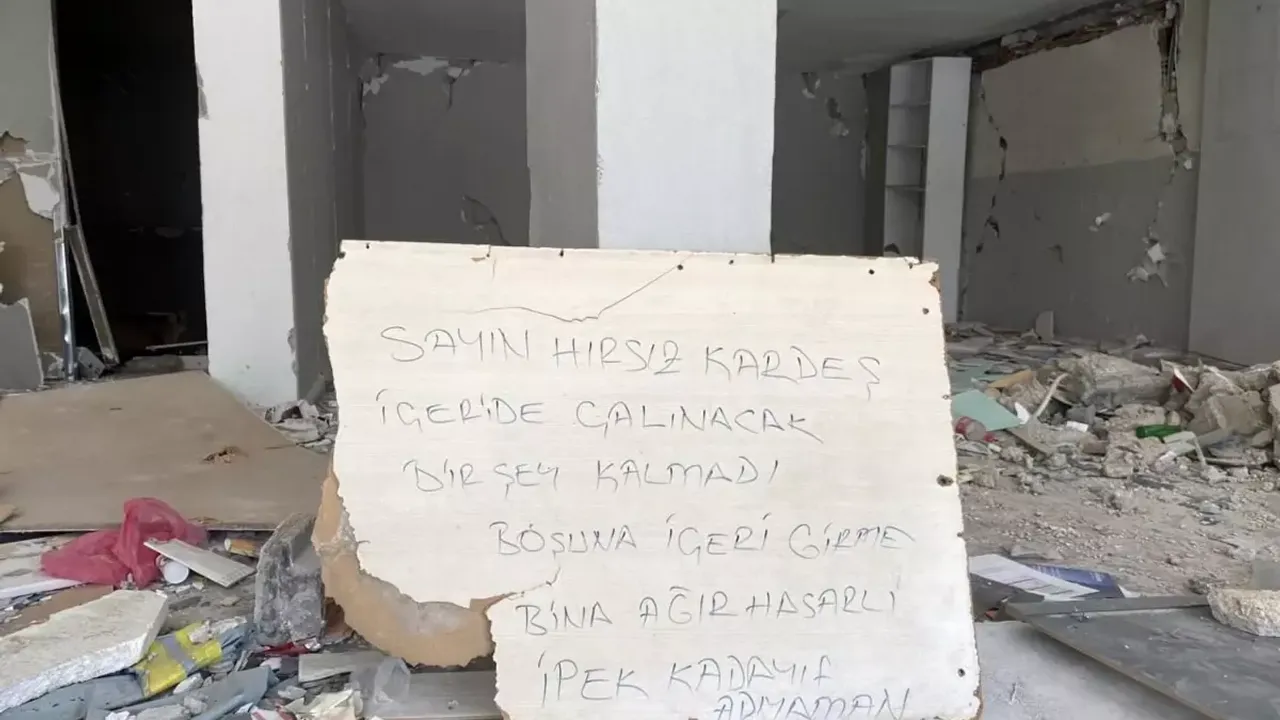 SAYIN HIRSIZ KARDEŞ
İÇERİDE ÇALINACAK
BİR ŞEY KALMADI
BOŞUNA İÇERİ GİRME
BİNA AĞIR HASARLI
İPEK KADAYIF
ADIYAMAN